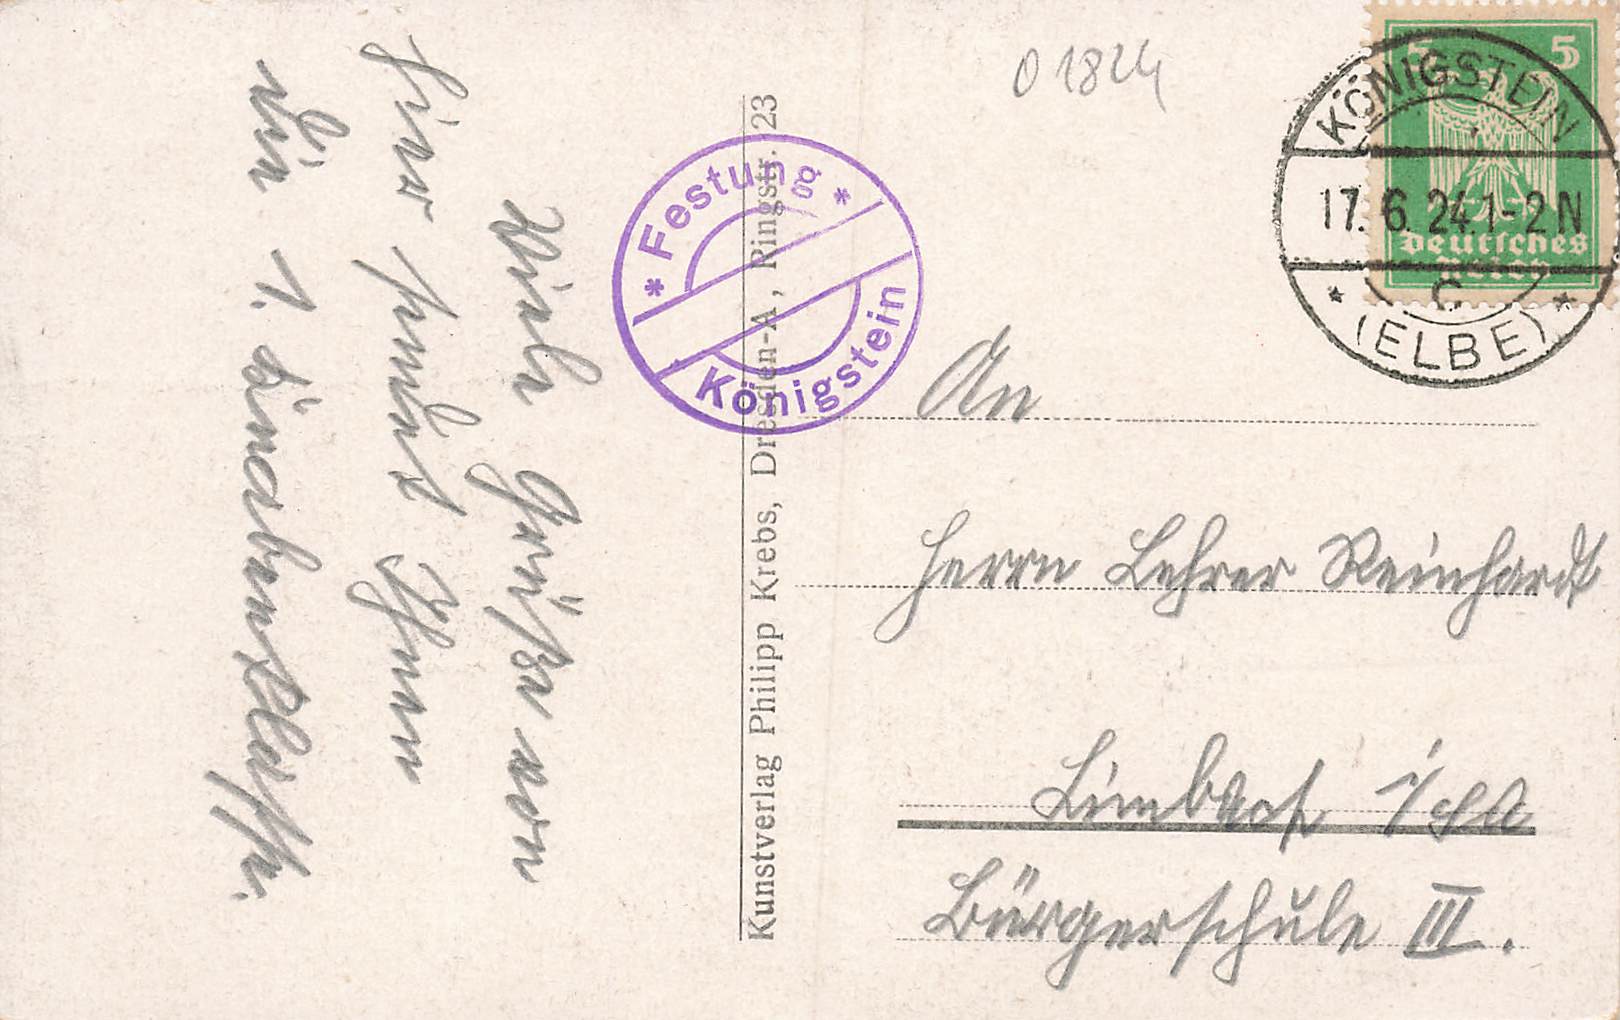 Viele Grüße von
hier sendet Ihnen
die 1. Knabenklasse.
Kunstverlag Philipp Krebs, Dresden-A, Ringstr. 23
* Festung *
Königstein
O 1824
5 5
Deutsches
Reich
KÖNIGSTEIN
17.6.24.1-2N
* C *
(ELBE)
An
Herrn Lehrer Reinhardt
Limbach i/Sa
Bürgerschule III.